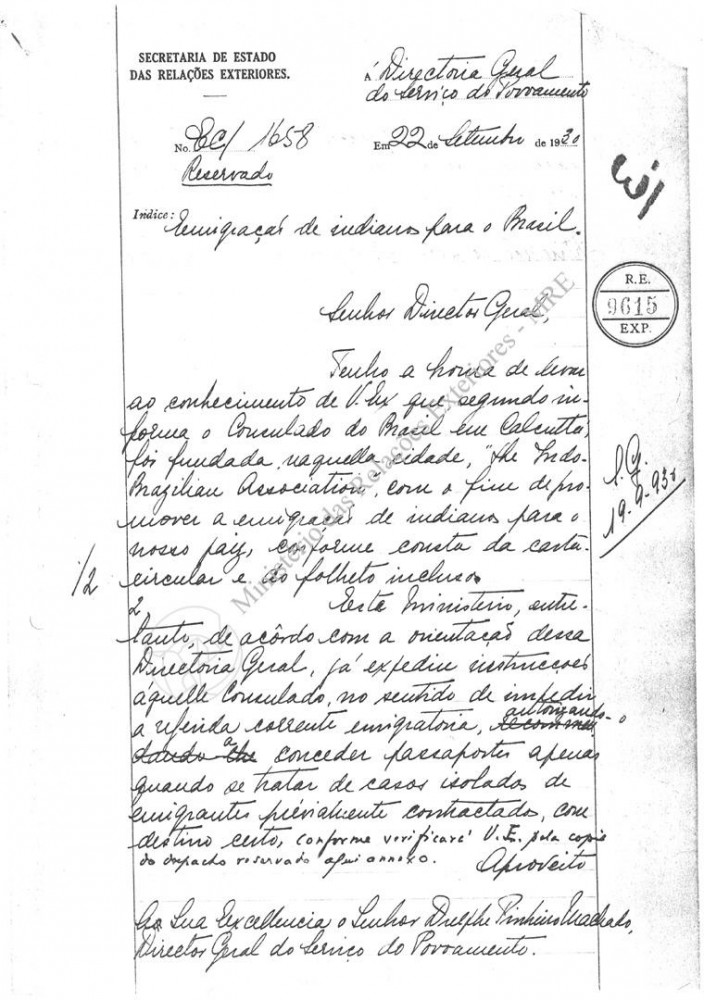 SECRETARIA DE ESTADO
DAS RELAÇÕES EXTERIORES.
Á Directoria Geral
do Serviço do Povoamento
No. EC/ 1658
Reservado
Em 22 de Setembro de 1930
Indice:
Emigração de indianos para o Brasil.
R.E.
9615
EXP.
Senhor Director Geral,
Tenho a honra de levar
ao conhecimento de V. Ex que, segundo in-
forma o Consulado do Brasil em Calcuttá,
foi fundada, naquella cidade, "The Indo-
Brazilian Association", com o fim de pro-
mover a emigração de indianos para o
nosso paiz, conforme consta da carta-
circular e do folheto inclusos.
1/2
2. Este Ministerio, entre-
tanto, de acôrdo com a orientação dessa
Directoria Geral, já expediu instrucções
áquelle Consulado, no sentido de impedir
a referida corrente emigratoria, recommen
autorizando-o
dando-lhe a conceder passaportes apenas
quando se tratar de casos isolados de
emigrantes préviamente contractados, com
destino certo, conforme verificará V. E. pela copia
do despacho reservado aqui annexo.
Aproveito
A Sua Excellencia o Senhor Dulphe Pinheiro Machado,
Director Geral do Serviço do Povoamento.
19-9-930
Ministério das Relações Exteriores - MRE